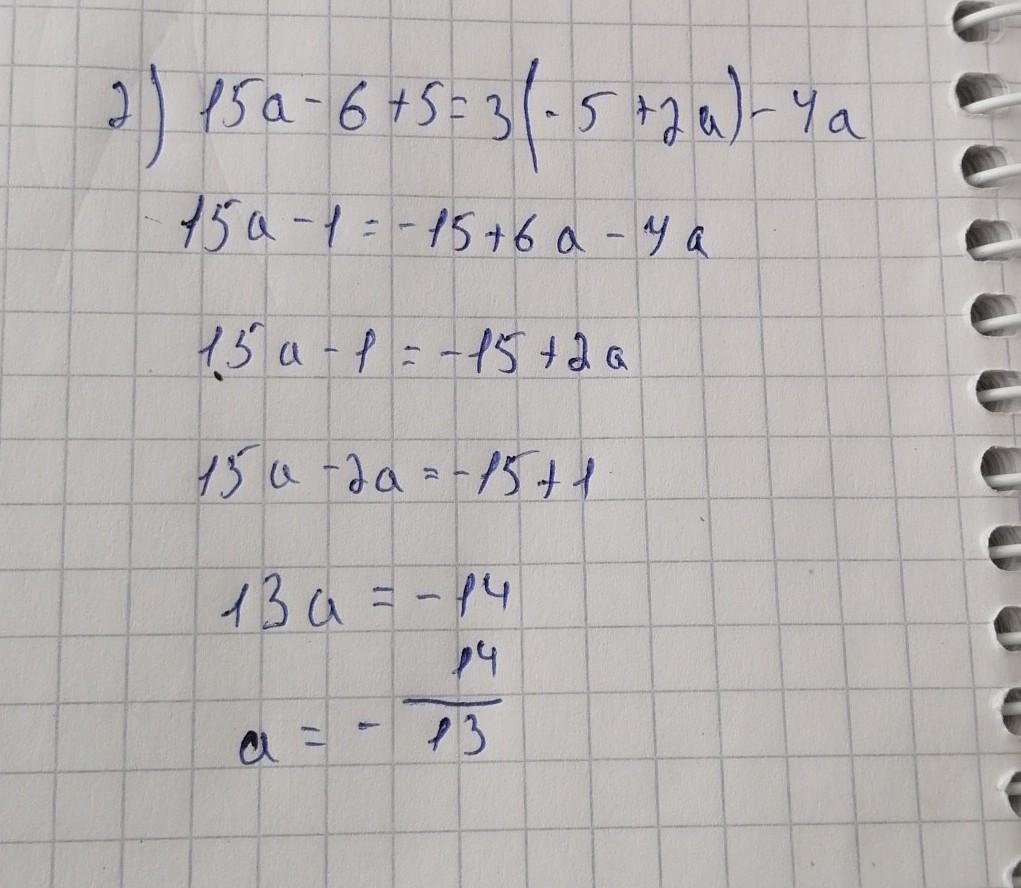 2) 15a - 6 + 5 = 3(-5 + 2a) - 4a
15a - 1 = -15 + 6a - 4a
15a - 1 = -15 + 2a
15a - 2a = -15 + 1
13a = -14
a = - 14/13